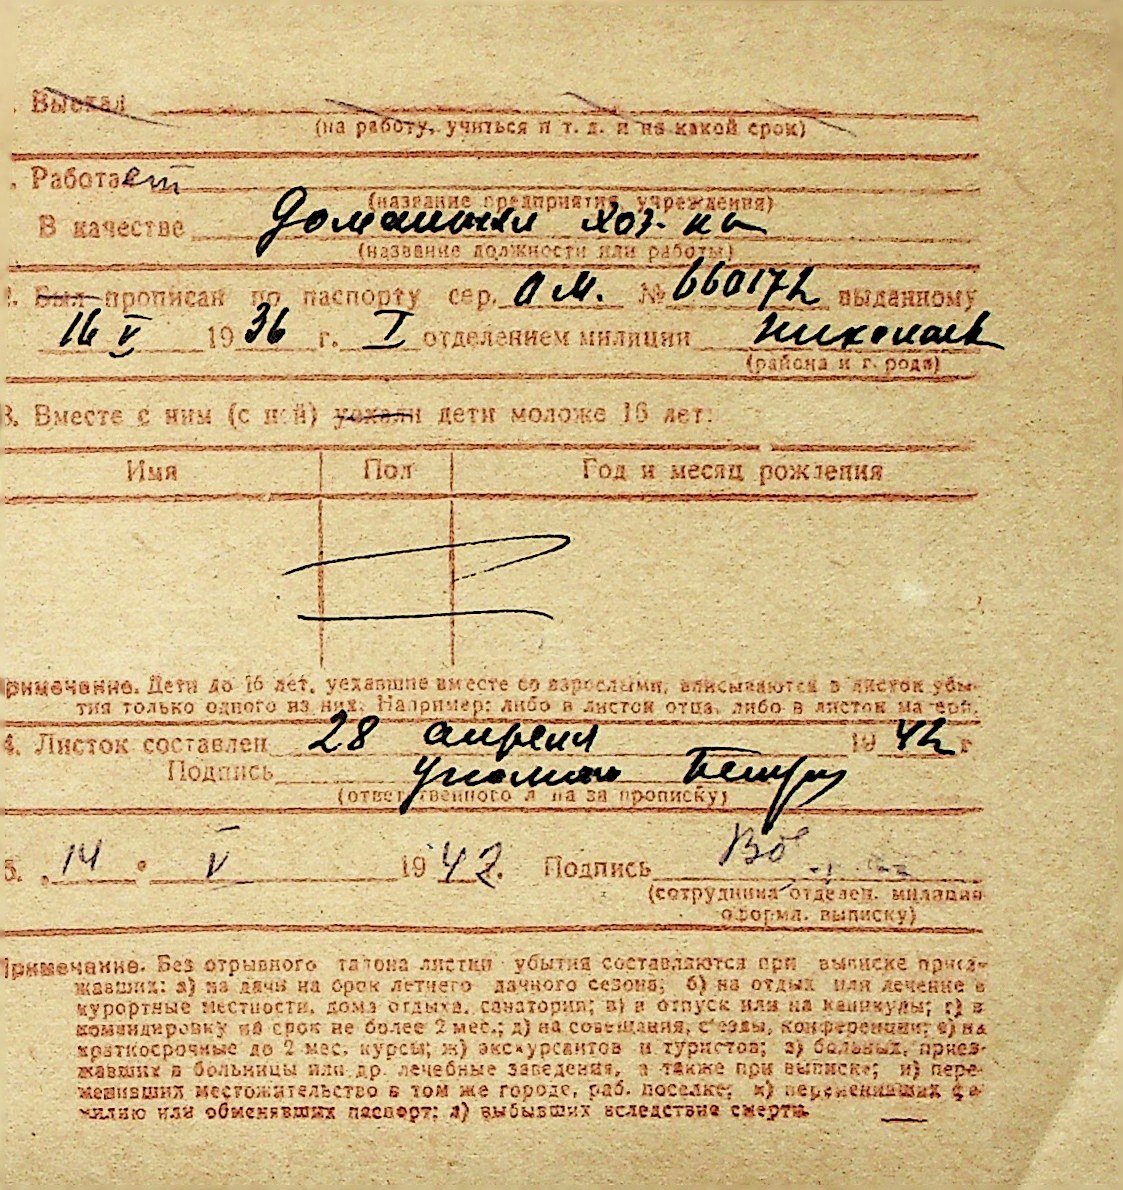 . Выехал
(на работу, учиться и т. д. и на какой срок)
. Работает
(название предприятия, учреждения)
В качестве Домашняя хоз-ка
(название должности или работы)
2. Был прописан по паспорту сер. АМ. № 660172 выданному
16 V 1936 г. I отделением милиции Николаев
(района и города)
3. Вместе с ним (с ней) уехали дети моложе 16 лет:
Имя Пол Год и месяц рождения
Примечание. Дети до 16 лет, уехавшие вместе со взрослыми, вписываются в листок убы-
тия только одного из них. Например: либо в листок отца, либо в листок матери.
4. Листок составлен 28 апреля 1942 г
Подпись
(ответственного лица за прописку)
5. „14 " V 1942. Подпись
(сотрудника отделен. милиции
оформл. выписку)
Примечание. Без отрывного талона листки убытия составляются при выписке приез-
жавших: а) на дачи на срок летнего дачного сезона; б) на отдых или лечение в
курортные местности, дома отдыха, санатории; в) в отпуск или на каникулы; г) в
командировку на срок не более 2 мес.; д) на совещания, с'езды, конференции; е) на
краткосрочные до 2 мес. курсы; ж) экскурсантов и туристов; з) больных, приез-
жавших в больницы или др. лечебные заведения, а также при выписке; и) пере-
менивших местожительство в том же городе, раб. поселке; к) переменивших фа-
милию или обменявших паспорт; л) выбывших вследствие смерти.